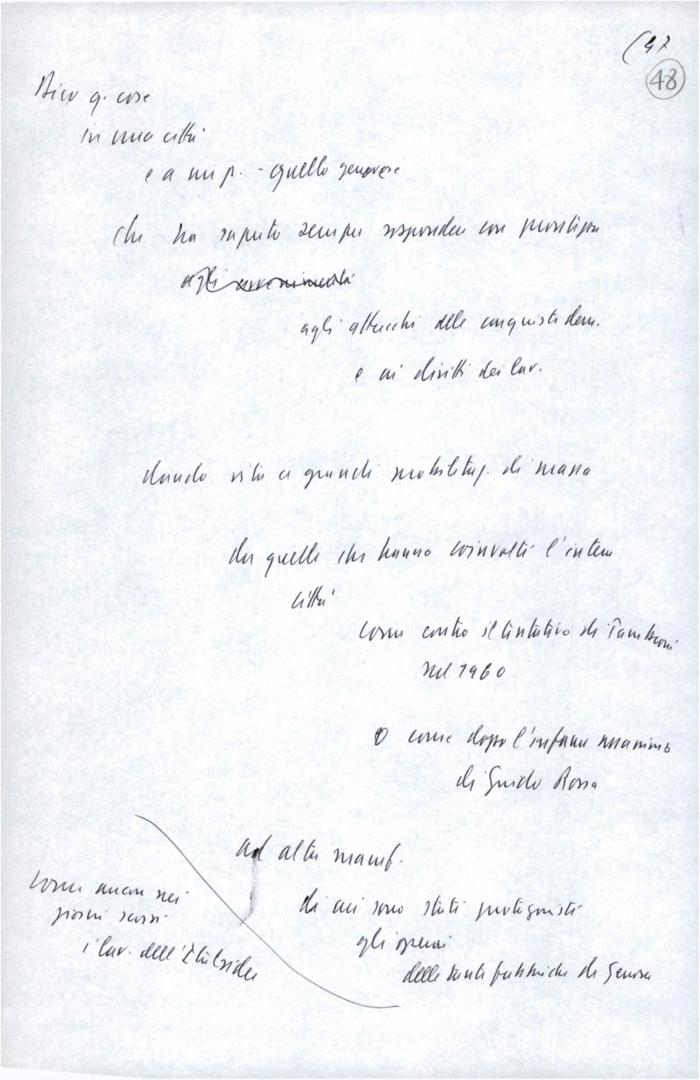 (47
48
Dico q. cose
in una città
e a un p. - quello genovese
che ha saputo sempre rispondere con prontezza
agli avvenimenti
agli attacchi alle conquiste dem.
e ai diritti dei lav.
dando vita a grandi mobilitaz. di massa
da quelle che hanno coinvolto l'intera
città
come contro il tentativo di Tambroni
nel 1960
o come dopo l'infame assassinio
di Guido Rossa
ad altre manif.
di cui sono stati protagonisti
gli operai
delle tante fabbriche di Genova
come ancora nei
giorni scorsi
i lav. dell'Italsider